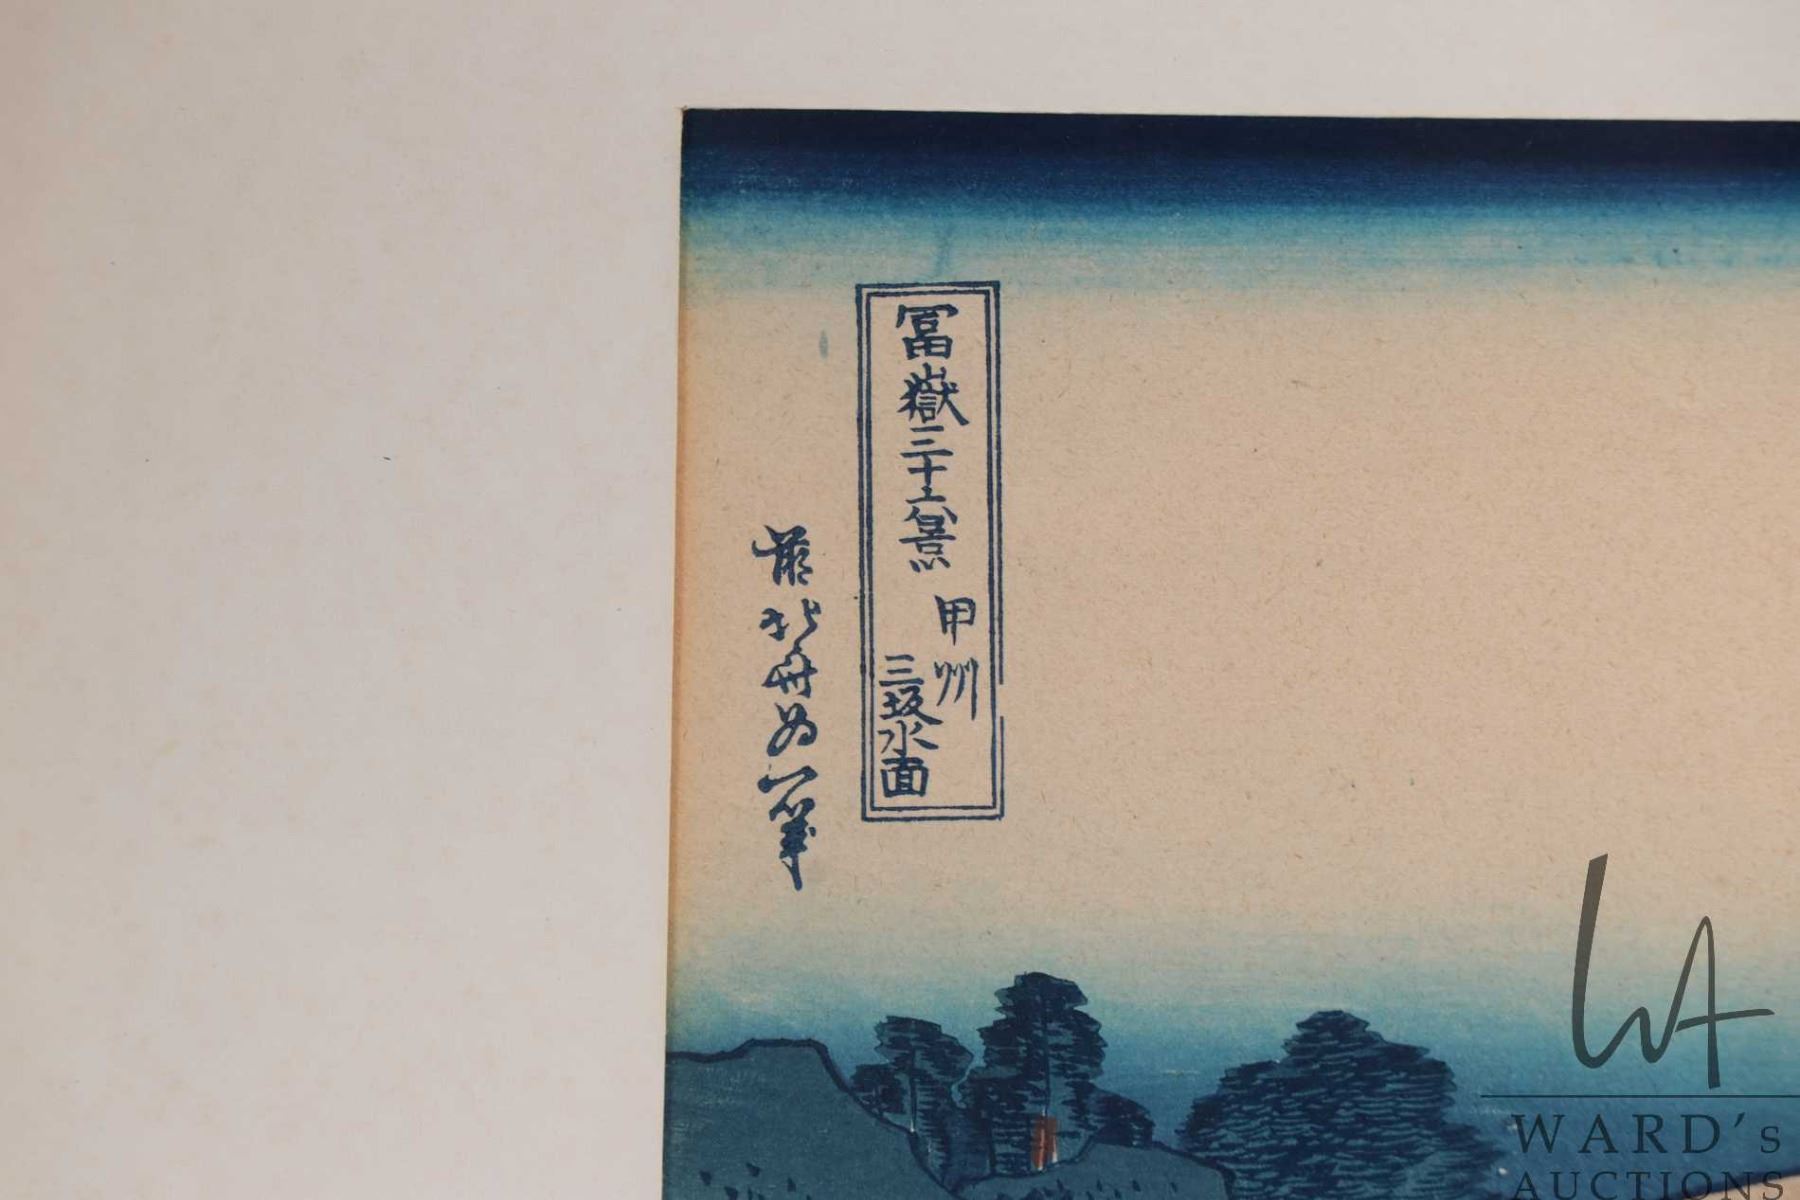 冨嶽三十六景
甲州
三坂水面
前北斎為一筆
WARD's
AUCTIONS